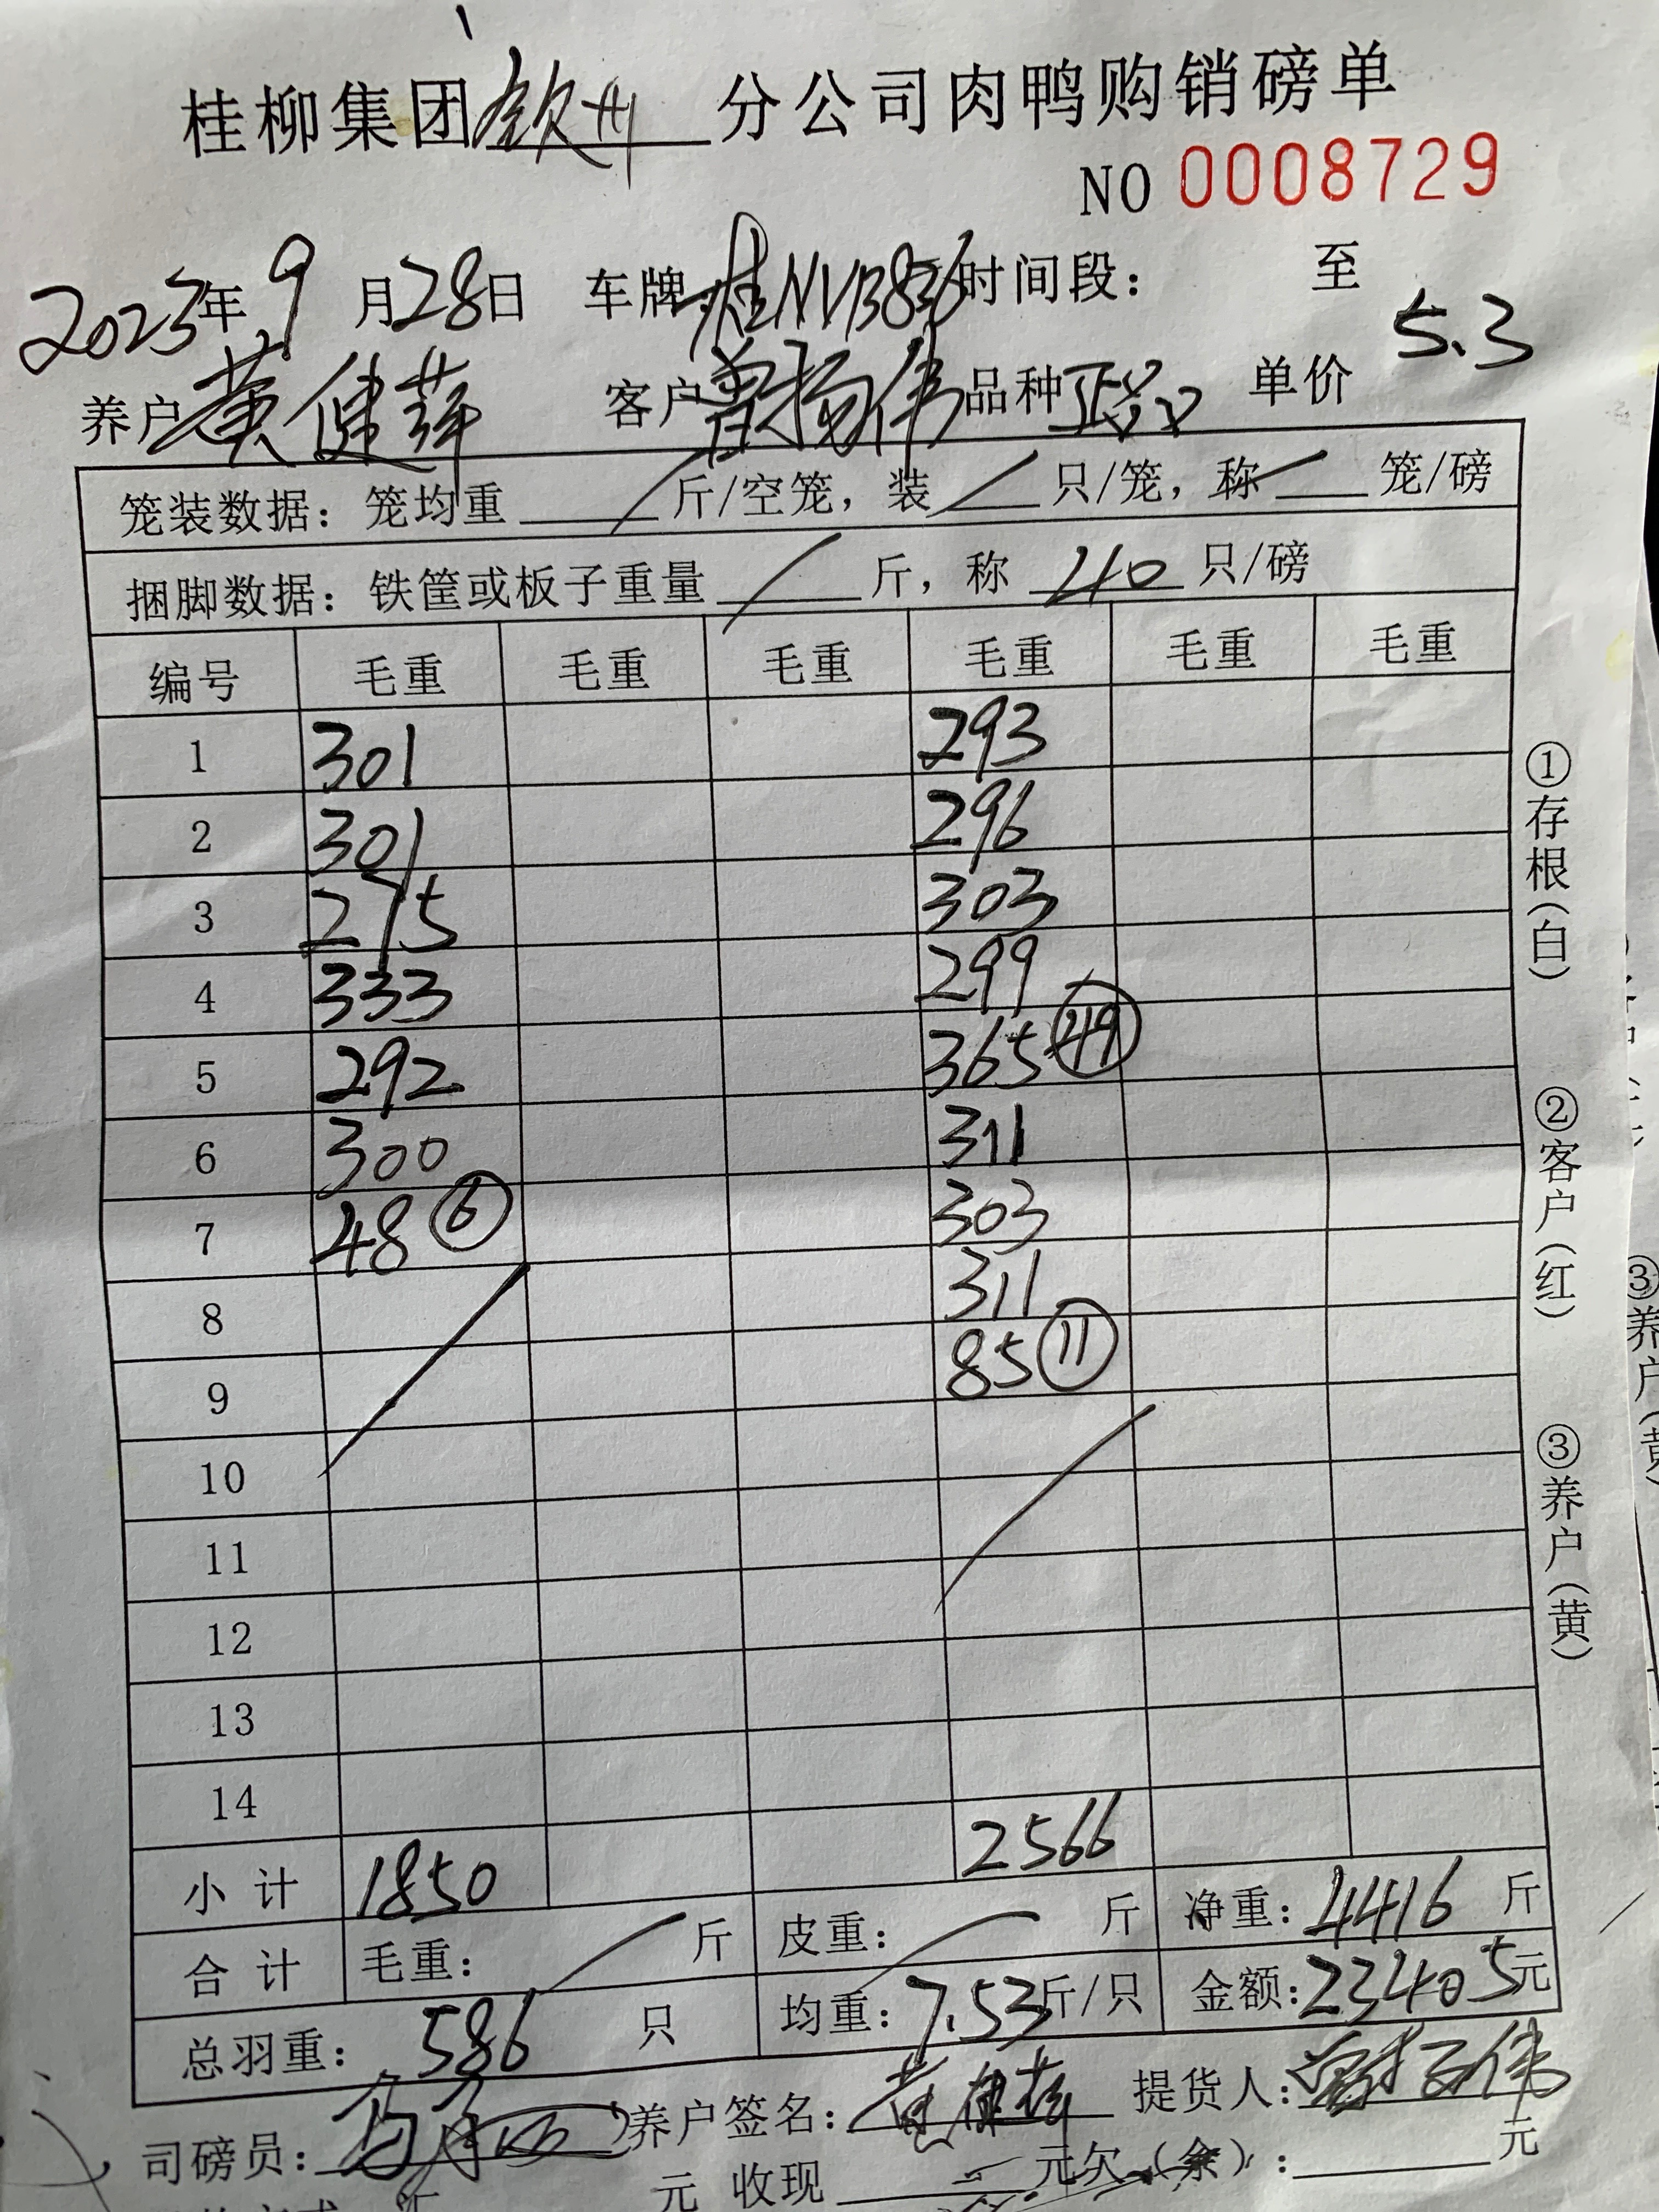 桂柳集团钦州分公司肉鸭购销磅单
NO 0008729
2023年9月28日 车牌:桂NVB836时间段: 至
养户黄健萍 客户曾扬伟品种 单价 5.3
笼装数据: 笼均重 / 斤/空笼, 装 / 只/笼, 称 / 笼/磅
捆脚数据: 铁筐或板子重量 / 斤, 称 40 只/磅
编号 毛重 毛重 毛重 毛重 毛重 毛重
1 301 293
2 301 296
3 275 303
4 333 299
5 292 365 49
6 300 311
7 48 ⑥ 303
8 311
9 85 ⑪
10
11
12
13
14
小计 1850 2566
合计 毛重: / 斤 皮重: / 斤 净重: 4416 斤
总羽重: 586 只 均重: 7.53斤/只 金额:23405元
司磅员: 养户签名: 黄健萍 提货人:曾扬伟
元 收现 元欠(余): 元
①存根(白)
②客户(红)
③养户(黄)
③养户(黄)